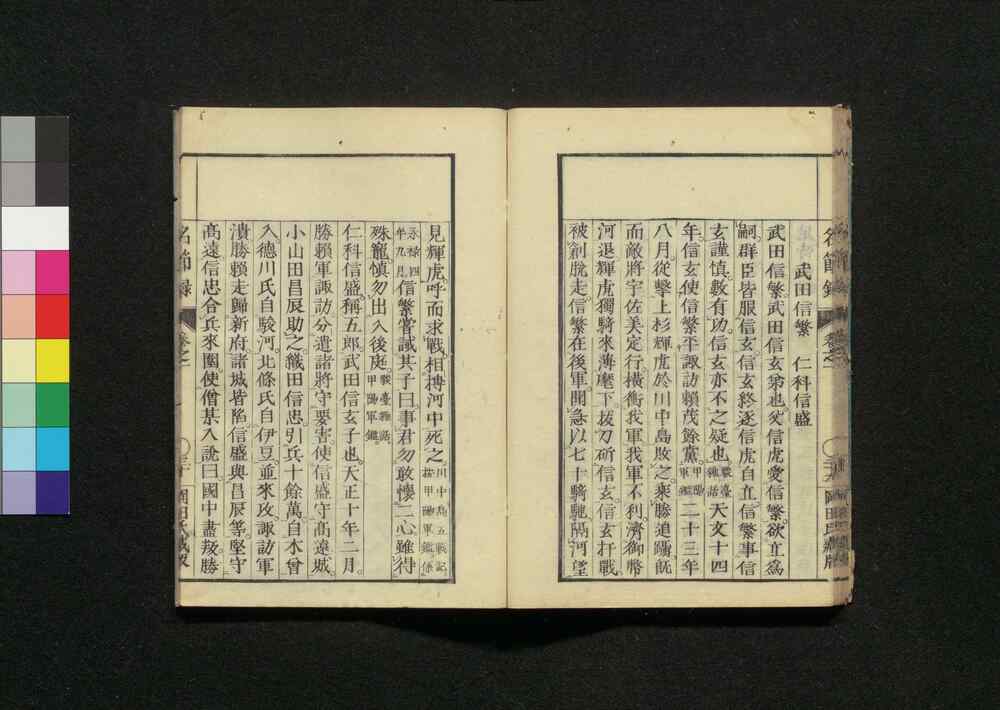 武田信繁　仁科信盛
武田信繁。武田信玄弟也。父信虎愛信繁。欲立爲
嗣。群臣皆服信玄。信玄終逐信虎自立。信繁事信
玄謹愼。數有功。信玄亦不之疑也。駿臺雜話天文十四
年。信玄使信繁平諏訪賴茂餘黨。甲陽軍鑑二十三年
八月。從擊上杉輝虎於川中島敗之。乘勝追躡。既
而敵將宇佐美定行。橫衝我軍。我軍不利。濟御幣
河退。輝虎獨騎來薄麾下。拔刀斫信玄。信玄扞戰。
被創脫走。信繁在後軍聞急。以七十騎馳。隔河望
見輝虎。呼而求戰。相摶河中死之。川中島五戰記按甲陽軍鑑係
永祿四年九月信繁嘗誡其子曰。事君勿敢懷二心。雖得
殊寵。愼勿出入後庭。駿臺雜話甲陽軍鑑
仁科信盛。稱五郎。武田信玄子也。天正十年二月。
勝賴軍諏訪。分遣諸將守要害。使信盛守高遠城。
小山田昌辰助之。織田信忠引兵十餘萬。自木曾
入。德川氏自駿河。北條氏自伊豆。並來攻。諏訪軍
潰。勝賴走歸新府。諸城皆陷。信盛與昌辰等。堅守
高遠。信忠合兵來圍。使僧某入說曰。國中盡叛。勝
名節錄
卷之一
岡田氏藏版